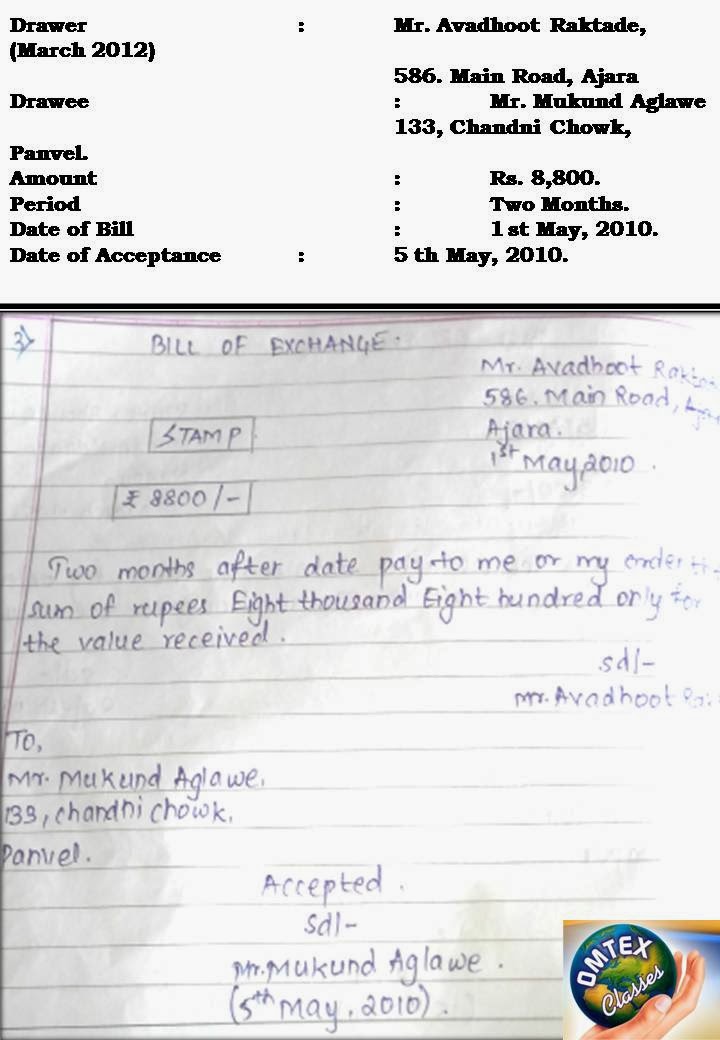 Drawer : Mr. Avadhoot Raktade,
(March 2012)
586. Main Road, Ajara
Drawee : Mr. Mukund Aglawe
133, Chandni Chowk,
Panvel.
Amount : Rs. 8,800.
Period : Two Months.
Date of Bill : 1 st May, 2010.
Date of Acceptance : 5 th May, 2010.
3)
BILL OF EXCHANGE.
Mr. Avadhoot
586. Main Road,
Ajara.
1st May, 2010.
STAMP
₹ 8800/-
Two months after date pay to me or my order
sum of rupees Eight thousand Eight hundred only for
the value received.
sd/-
Mr. Avadhoot
To,
Mr. Mukund Aglawe.
133, Chandni Chowk,
Panvel.
Accepted.
sd/-
Mr. Mukund Aglawe.
(5th May, 2010).
OMTEX
Classes